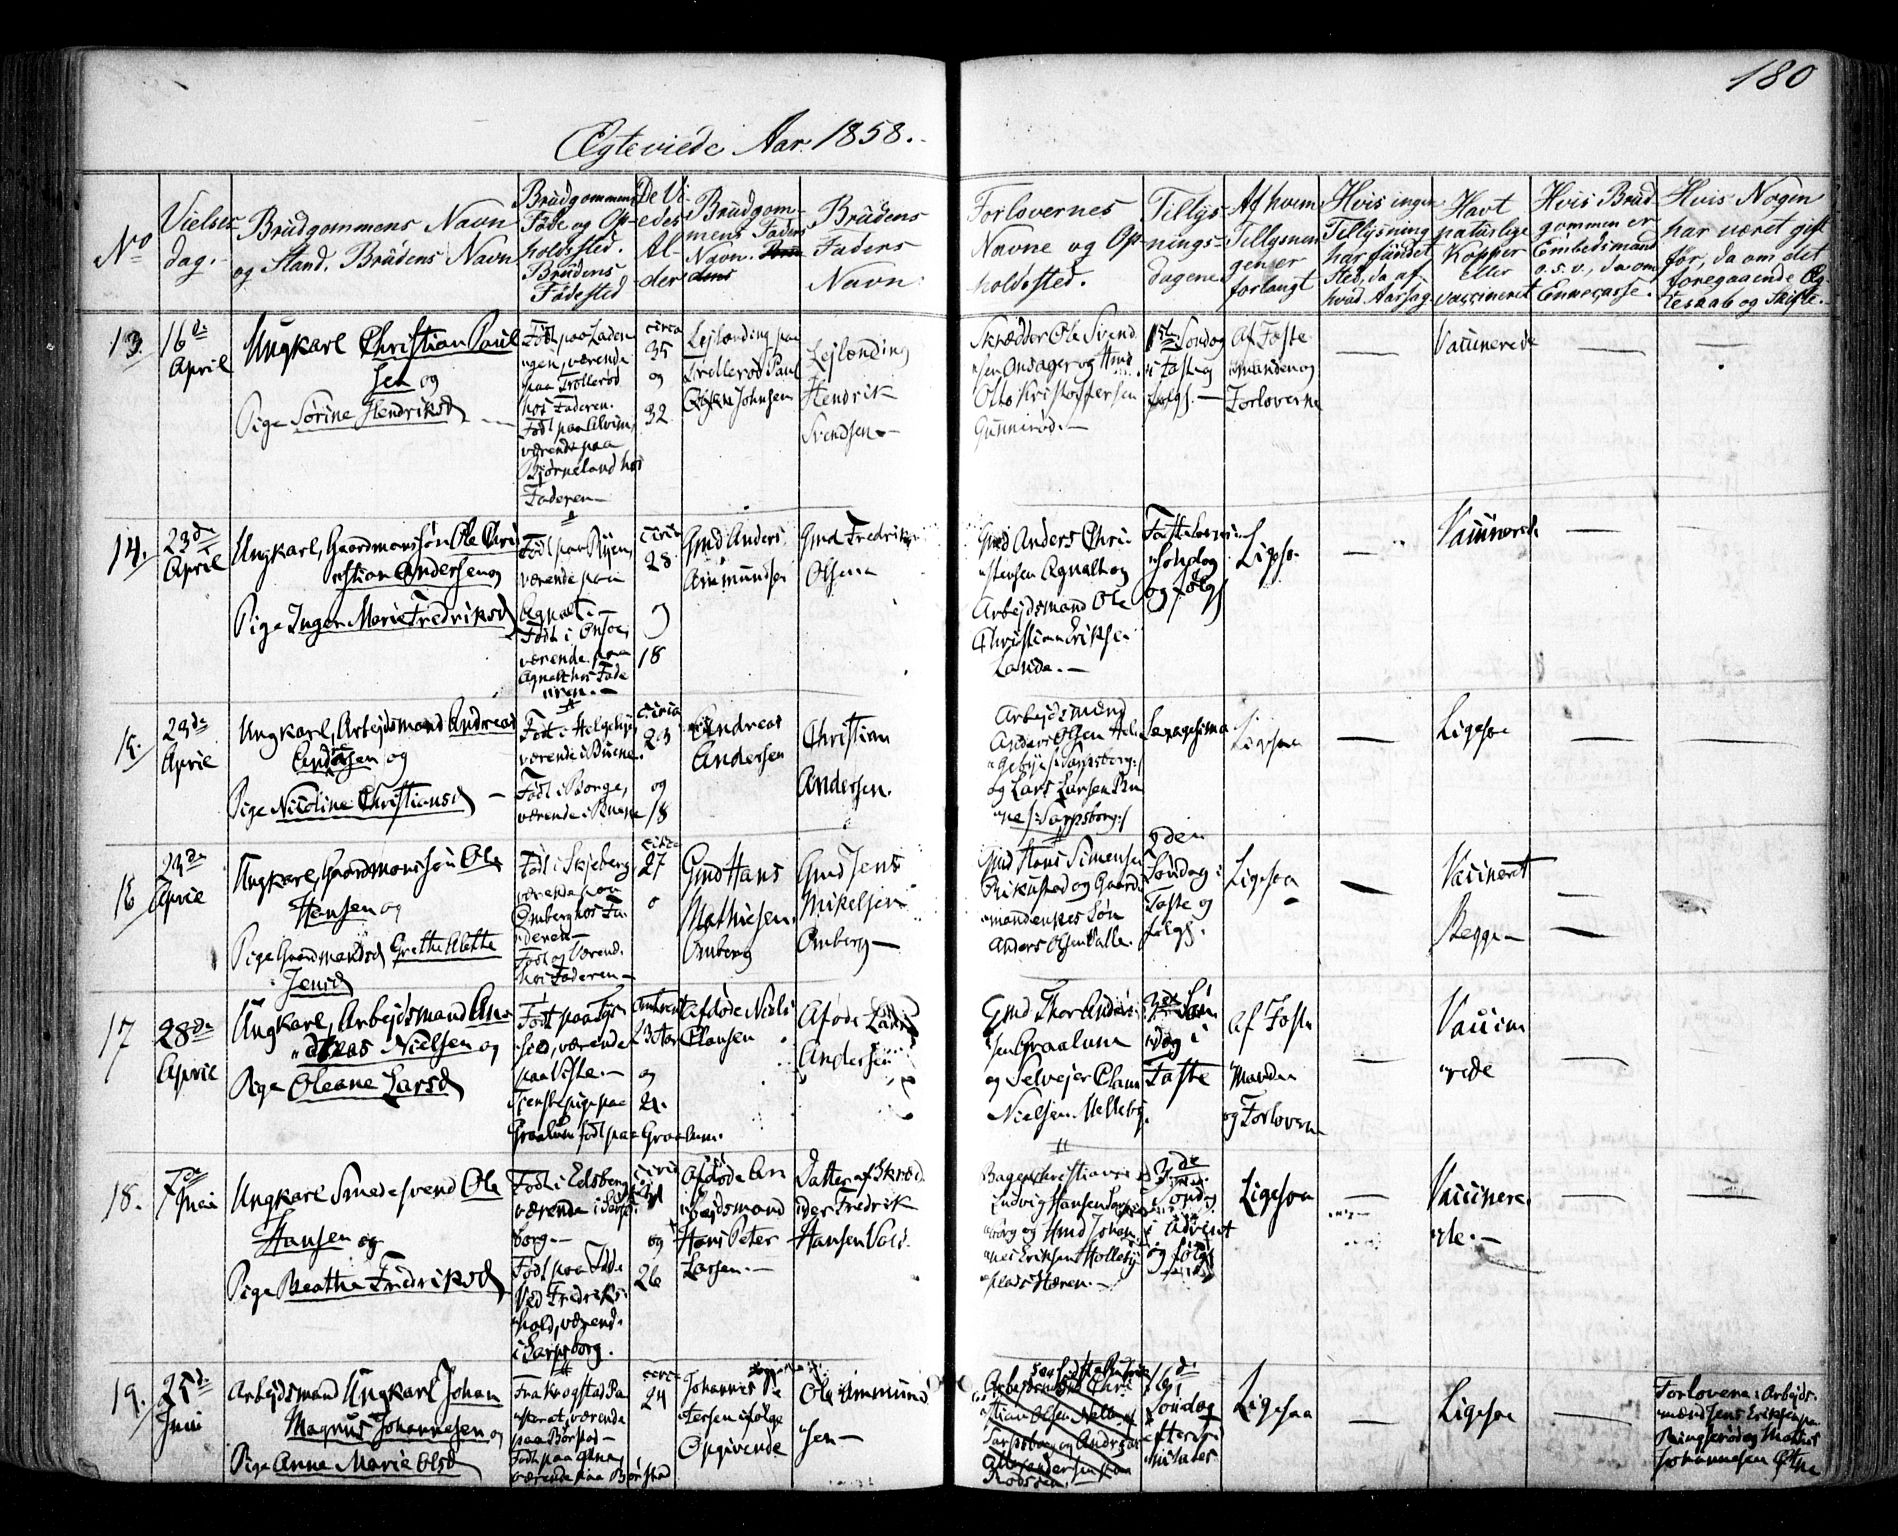 180
Ægteviede Aar 1858.
No
Vielses-
dag.
Brudgommens Navn
og Stand. Brudens Navn
Brudgommens
Føde og Op-
holdssted.
Brudens
Fødested
De Vi-
edes
Al-
der
Brudgom-
mens Faders
Navn.
Brudens
Faders
Navn
Forlovernes
Navne og Op-
holdssted.
Tillys-
nings-
dagene
Af hvem
Tillysnin-
gen er
forlangt
Hvis ingen
Tillysning
har fundet
Sted, da af
hvad Aarsag
Havt
naturlige
Kopper
eller
vaccineret
Hvis Brud-
gommen er
Embedsmand
o.s.v., da om
Enkecasse.
Hvis Nogen
har været gift
før, da om det
foregaaende Æg-
teskab og Skifte.
13.
16de
April
Ungkarl Christian Paul
sen og
Pige Sørine Hendriksd
Født paa Laden
værende
paa Trollerød
hos Faderen.
værende paa
Bjørneland hos
Faderen
circa
35
og
32
Lejlænding paa
Trollerød Paul
Johnsen
Lejlænding
Hendrik
Svendsen
Skrædder Ole Svend
sen Onsager og Hmd
Otto Kristoffersen
Gunnirød.
1ste Søndag
i Faste og
følgs.
Af Faste
manden og
Forloverne
Vaccinerede
14.
23de
April
Ungkarl, Gaardmandssøn Ole Chri
stian Andersen og
Pige Inger Marie Fredriksd
værende paa
Agnalt.
Født i Onsøe,
værende paa
Agnalt hos Fade
ren.
circa
28
og
18
Gmd Anders
Aasmundsen
Gmd Fredrik
Olsen
Gmd Anders Chri-
stensen Agnalt og
Arbejdsmand Ole
Christian Eriksen
Lande.
Fastelavns
Søndag
og følgs
Ligesaa
Vaccinerede
15.
23de
April
Ungkarl, Arbejdsmand Andreas
Andersen og
Pige Nicoline Christiansd
værende i Buene.
Født i Borge,
værende i Buene
circa
23
og
18
Andreas
Andersen
Christian
Andersen.
Arbejdsmænd
Anders Olsen Hel
gebye /:Sarpsborg:/
og Lars Larsen Bu
ene /:Sarpsborg:/
Sexagesima
Ligesaa
Ligesaa
16
23de
April
Ungkarl, Gaardmandssøn Ole
Hansen og
Pige Gaardmandsd Grethe Alette
Jensd
Født i Skjeberg
værende paa
Omberg hos Fa-
deren
Født og værend.
hos Faderen
circa
27
Gmd Hans
Mathiesen
Omberg
Gmd Jens
Mikelsen
Omberg
Gmd Hans Simensen
og Gaard
mandens Søn
Anders Olsen Valle.
2den
Søndag i
Faste og
følgs.
Ligesaa
Vaccineret
Begge
17
28de
April
Ungkarl, Arbejdsmand An
dreas Nielsen og
Pige Oleane Larsd
værende
paa Viste.
Tjenstepige paa
Graalum født paa Graalum.
23 Aar
og
21.
Afdøde Niels
Clausen
Afdøde Lars
Andersen
Gmd Thor Anders
sen Graalum
og Selvejer Claus
Nielsen Melleby.
3die Søn
dag i
Faste
Af Faste
Manden
og Forlovern
Vaccine
rede
18.
7de
Juni
Ungkarl Smedesvend Ole
Hansen og
Pige Beathe Fredriksd
Født i Edsberg
værende i Sarps
borg.
Ved Fredriks
hold, værend.
i Sarpsborg.
circa
og
26
Afdøde Ar
bejdsmand
Hans Peter
Larsen.
Datter af Skræd
der Fredrik
Hansen
Bager Christian
Ludvig Hansen Sarps
borg og Hmd Johan
nes Eriksen Holleby
plads Hæren.
3de
Søndag
i Advent
og følgs
Ligesaa
Vaccinere
de.
19.
25de
Juni
Arbejdsmand Ungkarl Johan
Magnus Johannesen og
Pige Anne Marie Olsd
værende
paa Børstad
værende paa Børstad
circa
24
Johannes Pe
tersen ifølge
Opgivende
Ole Ammund
sen
Søndag
efter Tri
nitatis
Ligesaa
Ligesaa
Forlovere: Arbejds-
mænd Jens Eriksen paa
Ringserød og Mathis
Johannesen